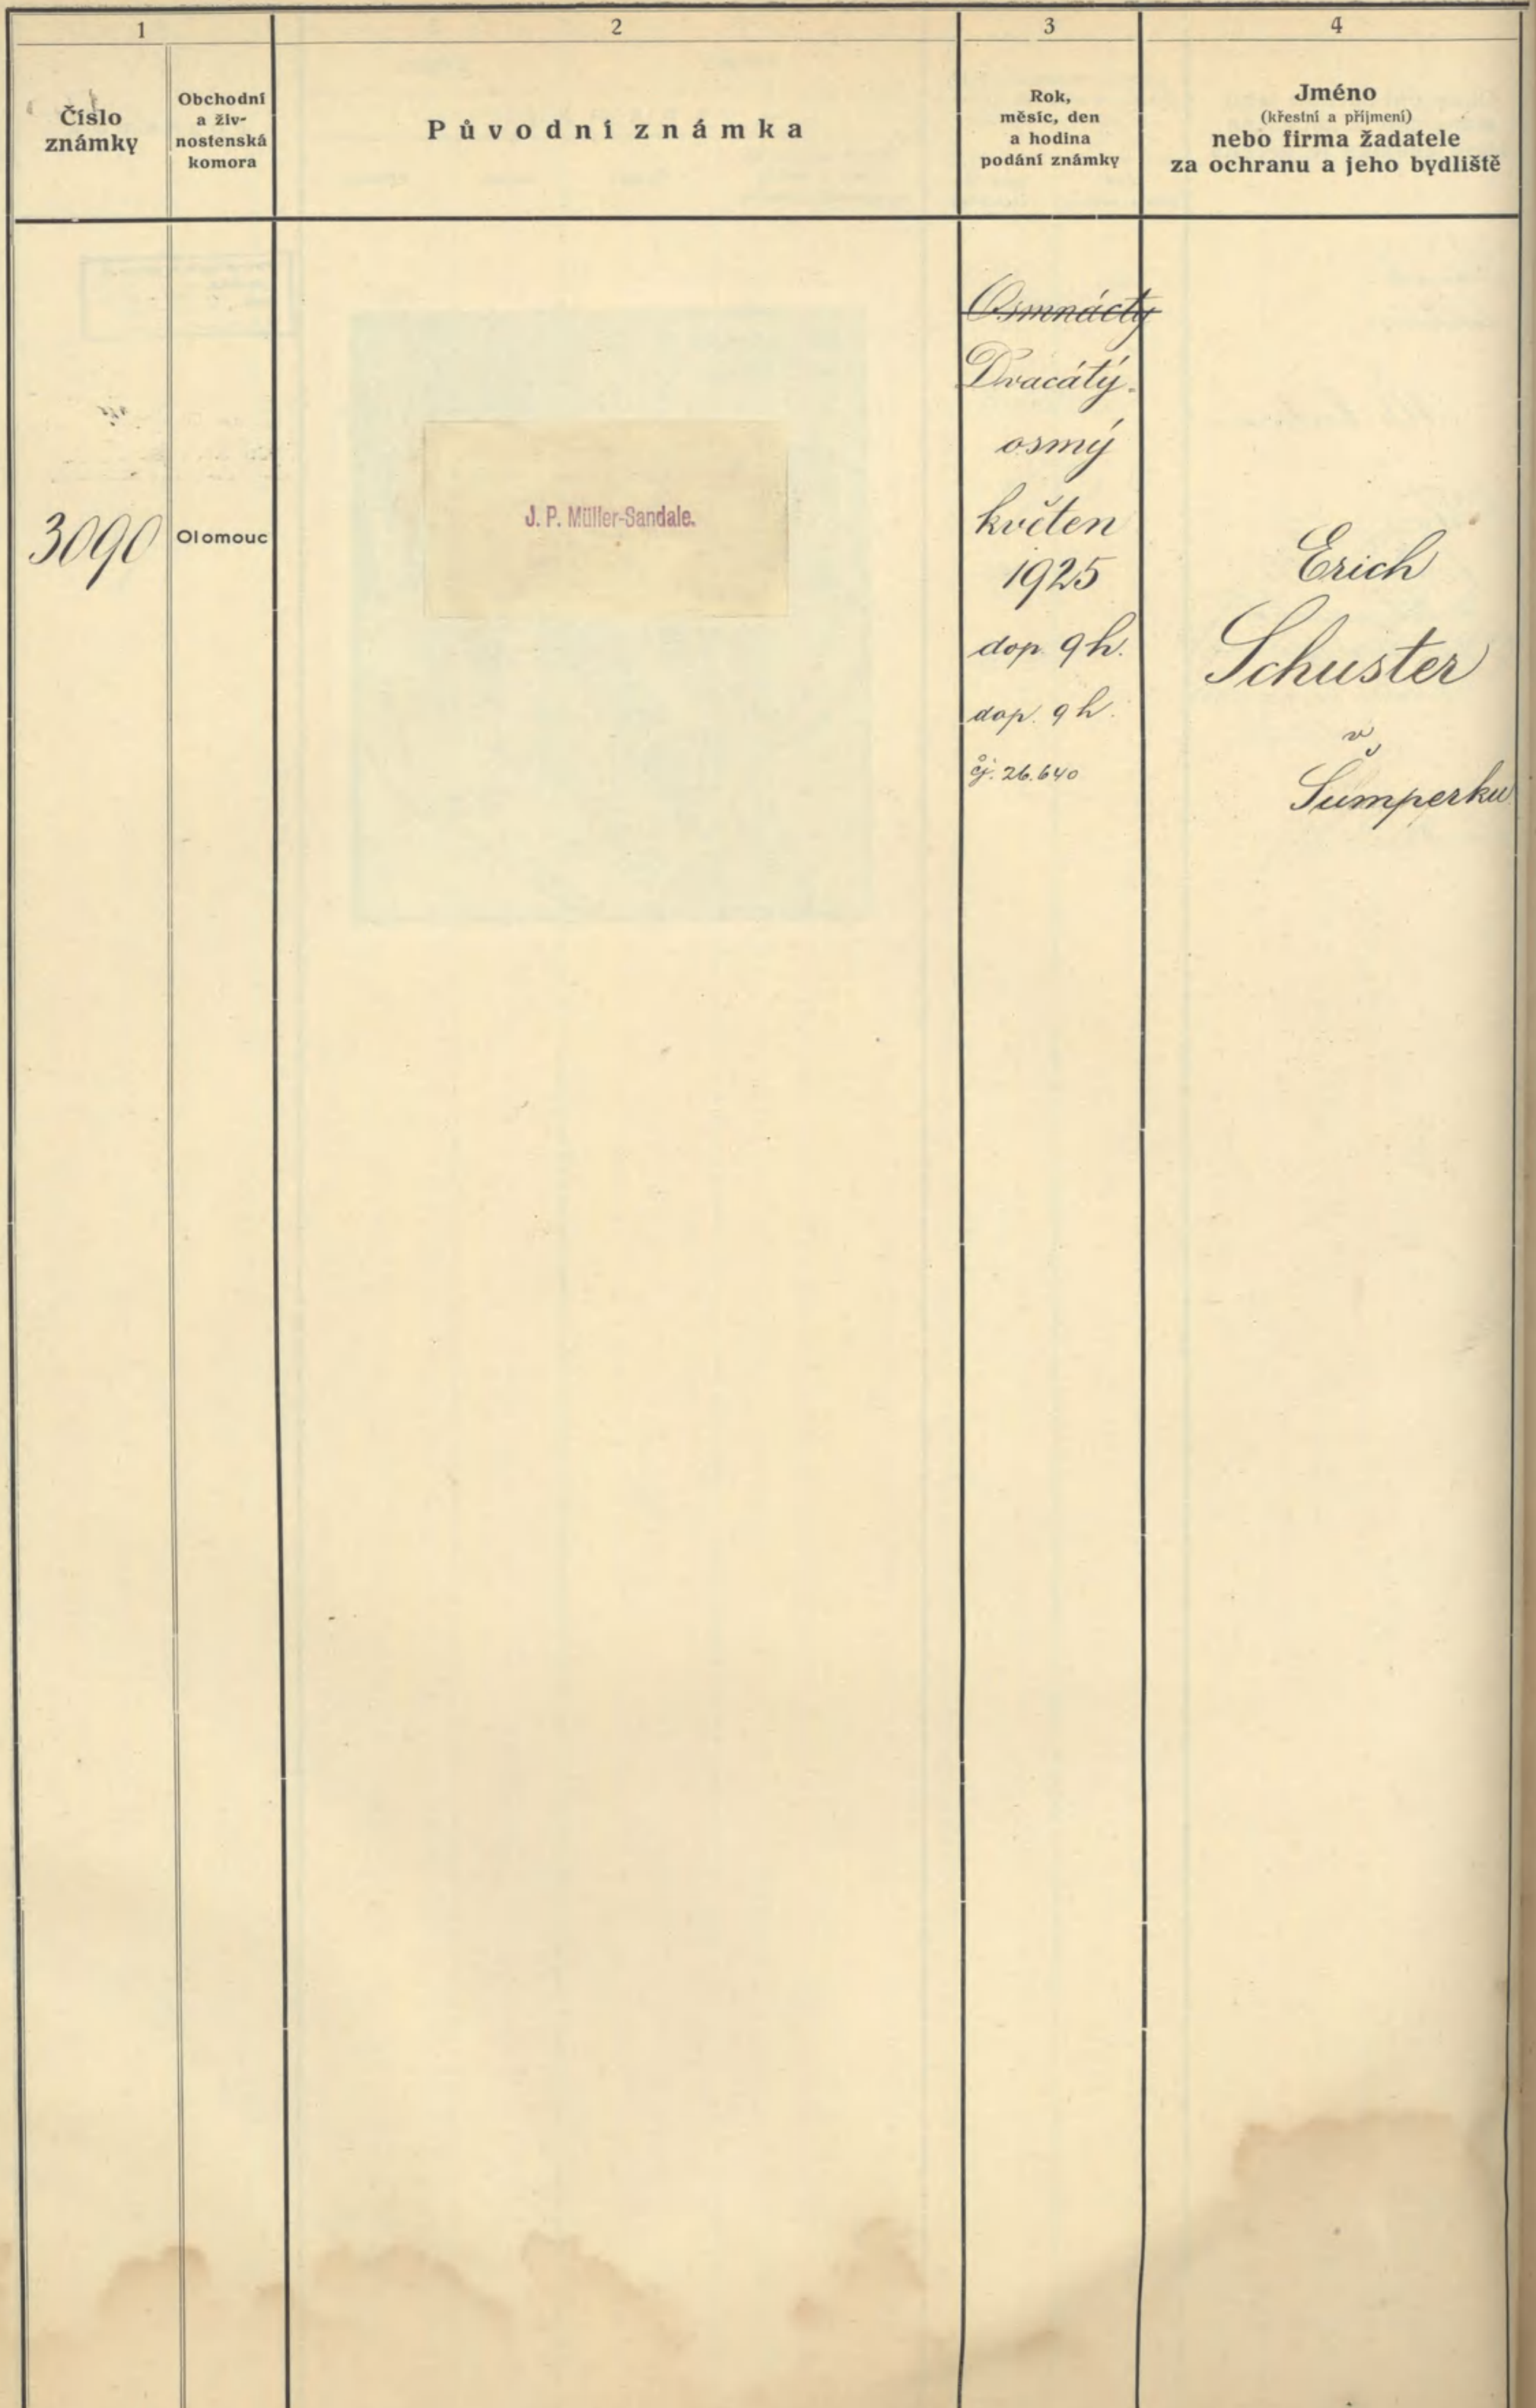 1
2
3
4
Číslo
známky
Obchodní
a živ-
nostenská
komora
Původní známka
Rok,
měsíc, den
a hodina
podání známky
Jméno
(křestní a příjmení)
nebo firma žadatele
za ochranu a jeho bydliště
3090
Olomouc
J. P. Müller-Sandale.
Osmnáctý
Dvacátý
osmý
květen
1925
dop. 9 h.
dop. 9 h.
čj. 26.640
Erich
Schuster
v
Šumperku